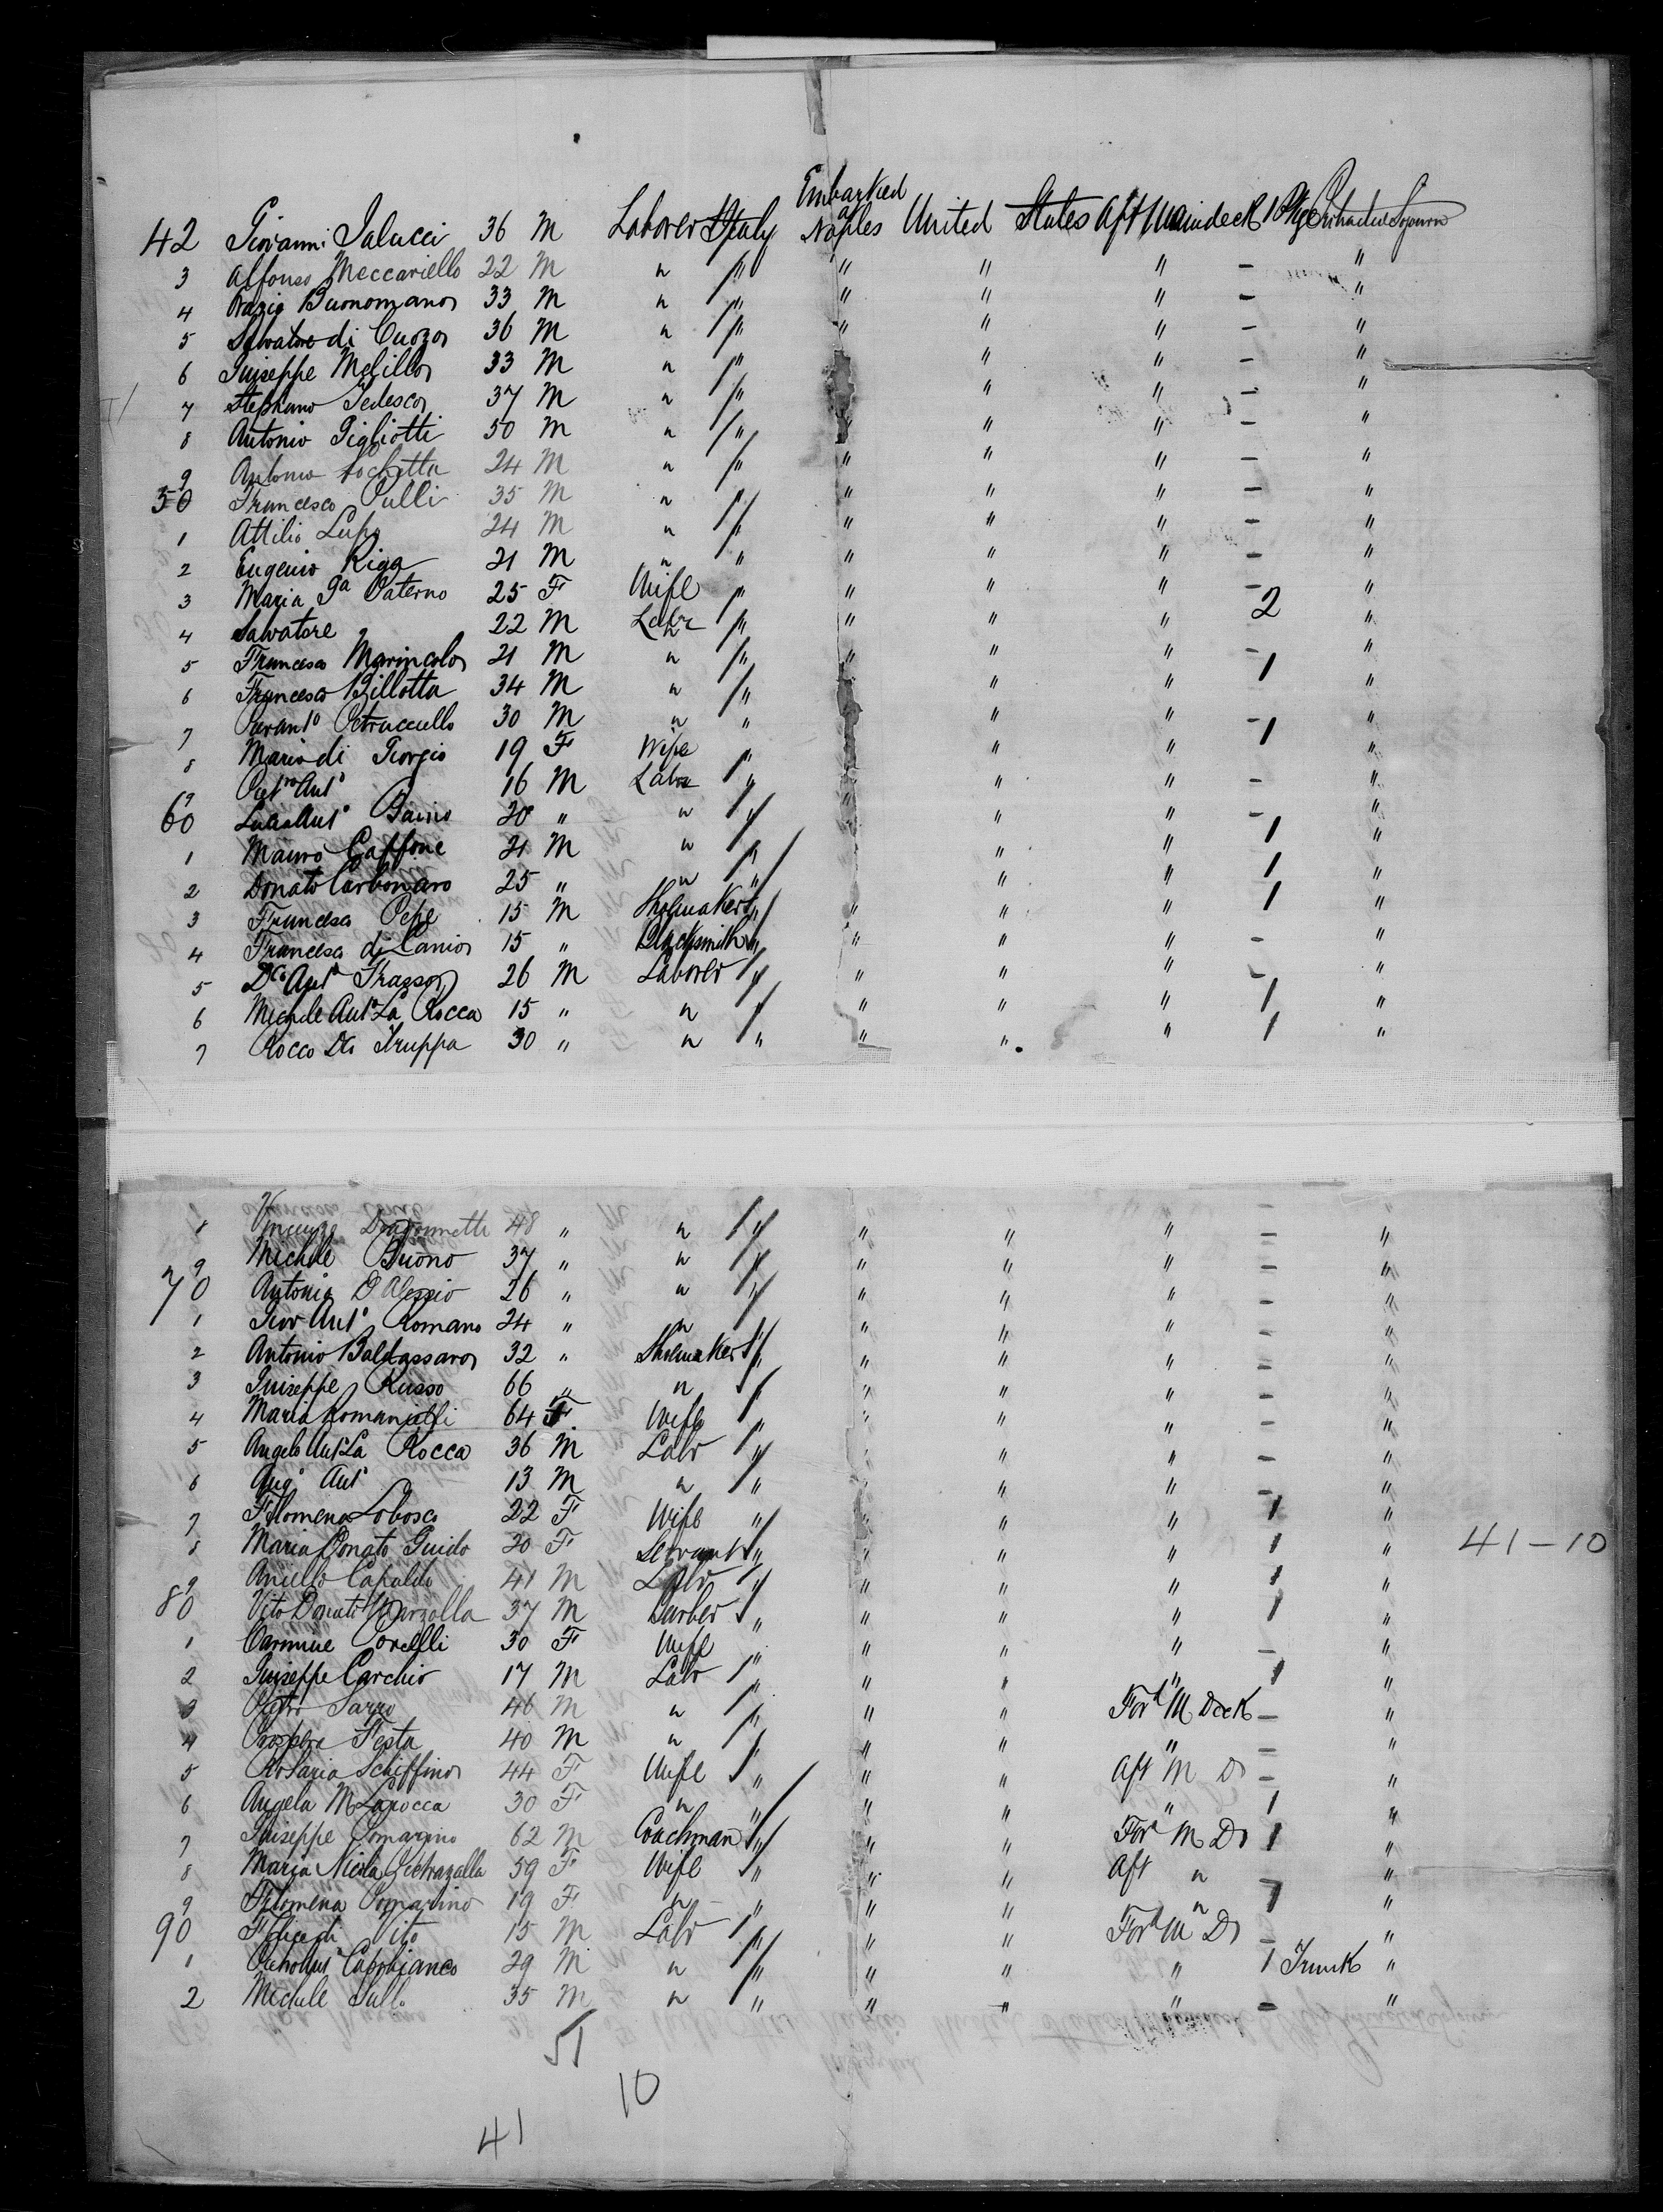 Embarked
42 Giovanni Salucci 36 M Laborer Italy at Naples United States Aft Maindeck 1 Pkge Protracted Sojourn
3 Alfonso Meccariello 22 M " " " " " - "
4 Orazio Buonomano 33 M " " " " " - "
5 Salvatore di Cuozo 36 M " " " " " - "
6 Guiseppe Melillo 33 M " " " " - "
7 Stephano Tedesco 37 M " " " " - "
8 Antonio Pigliotti 50 M " " " " " - "
9 Antonio 24 M " " " " " - "
50 Francesco Pulli 35 M " " " " " - "
1 Attilio Lupo 24 M " " " " " - "
2 Eugenio Riga 21 M " " " " " - "
3 Maria Ga Paterno 25 F Wife " " " " - "
4 Salvatore 22 M Labr " " " " 2 "
5 Francesco Marincolo 21 M " " " " " - "
6 Francesco Billotta 34 M " " " " 1 "
7 Petruccello 30 M " " " " - "
8 Maria di Giorgio 19 F Wife " " " 1 "
9 Anto 16 M Labr " " " - "
60 Anto 20 " " " " " - "
1 Mauro Gaffone 21 M " " " " 1 "
2 Donato Carbonaro 25 " " " " " 1 "
3 Francesco Pepe 15 M Shoemaker " " " " 1 "
4 Francesco di Canio 15 " Blacksmith " " " " - "
5 Dco Anto Trasso 26 M Laborer " " " " - "
6 Michele Anto La Rocca 15 " " " " " " 1 "
7 Rocco Do Truppa 30 " " " " " " 1 "
8 48 " " " " " " - "
9 Michele Buono 37 " " " " " " - "
70 Antonio D'Alessio 26 " " " " " " - "
1 Giov Anto Romano 24 " " " " " " - "
2 Antonio Baldassaro 32 " Shoemaker " " " " - "
3 Guiseppe Russo 66 " " " " " - "
4 Maria 64 F Wife " " " " - "
5 Angelo Anto La Rocca 36 M Labr " " " " - "
6 Ango Anto 13 M " " " " " - "
7 Filomena Lobosco 22 F Wife " " " " 1 "
8 Maria Donato Guido 20 F Servant " " " " 1 " 41-10
9 Aniello Capaldo 41 M Labr " " " " 1 "
80 Vito Donato Marzolla 37 M Barber " " " " 1 "
1 Carmine Porelli 30 F Wife " " " " - "
2 Guiseppe Carchio 17 M Labr " " " " 1 "
3 Pietro Sarzo 46 M " " " " Ford M Deck - "
4 Prospero Testa 40 M " " " " " - "
5 Rosaria Schiffino 44 F Wife " " " Aft M D - "
6 Angela M Larocca 30 F " " " " " 1 "
7 Guiseppe Pomarino 62 M Coachman " " " Ford M D 1 "
8 Maria Nicola 59 F Wife " " " Aft " "
9 Filomena Pomarino 19 F " " " " " 1 "
90 Vito 15 M Labr " " " Ford M D - "
1 Capobianco 29 M " " " " " 1 Trunk "
2 Michele 35 M " " " " " - "
51
10
41